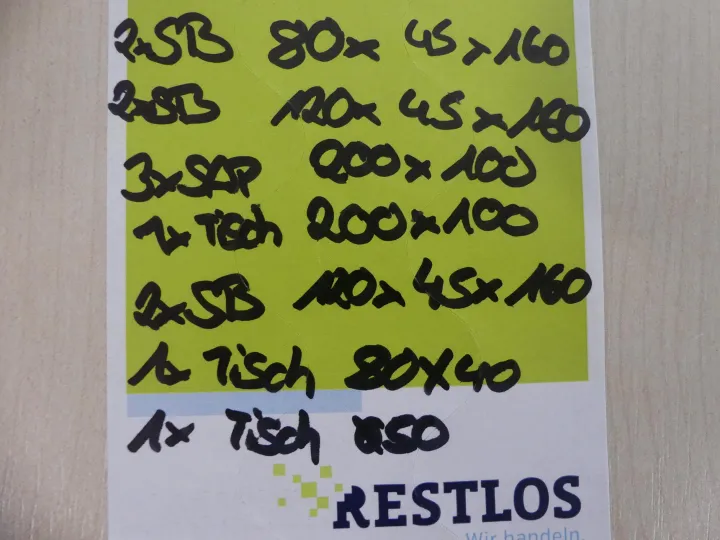 2xSB 80x 45x160
2xSB 120x 45x160
3xSAP 200x100
1x Tisch 200x100
2xSB 120x 45x160
1x Tisch 80x40
1x Tisch
RESTLOS
Wir handeln.